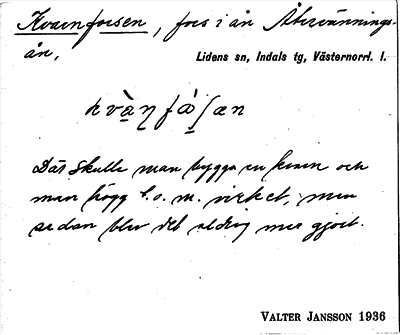 Kvarnforsen, fors i ån Återvännings-
ån,
Lidens sn, Indals tg, Västernorrl. l.
kvàṇfàʃan
Där skulle man bygga en kvarn och
man högg t. o. m. virket, men
sedan blev det aldrig mer gjort.
VALTER JANSSON 1936